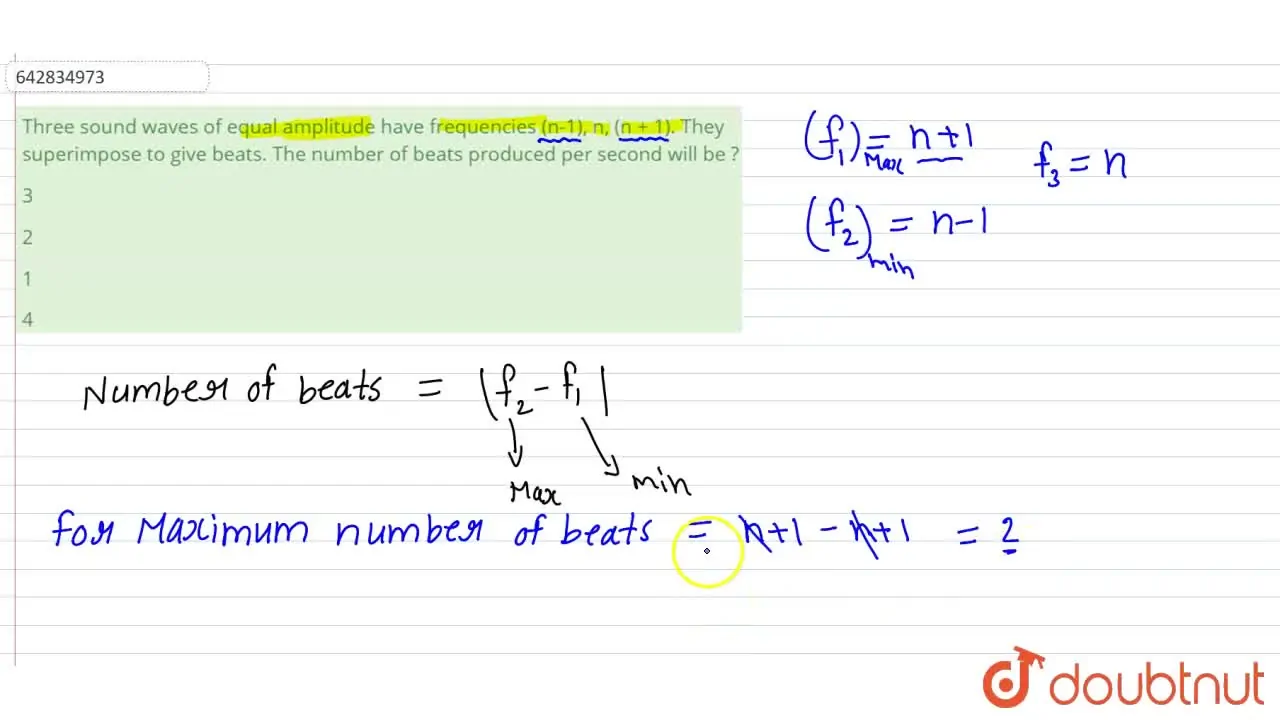 642834973
Three sound waves of equal amplitude have frequencies (n-1), n, (n + 1). They
superimpose to give beats. The number of beats produced per second will be ?
3
2
1
4
(f₁)Max = n+1
f₃ = n
(f₂)min = n-1
Number of beats = |f₂ - f₁|
Max min
for Maximum number of beats = n+1 - n+1 = 2
doubtnut